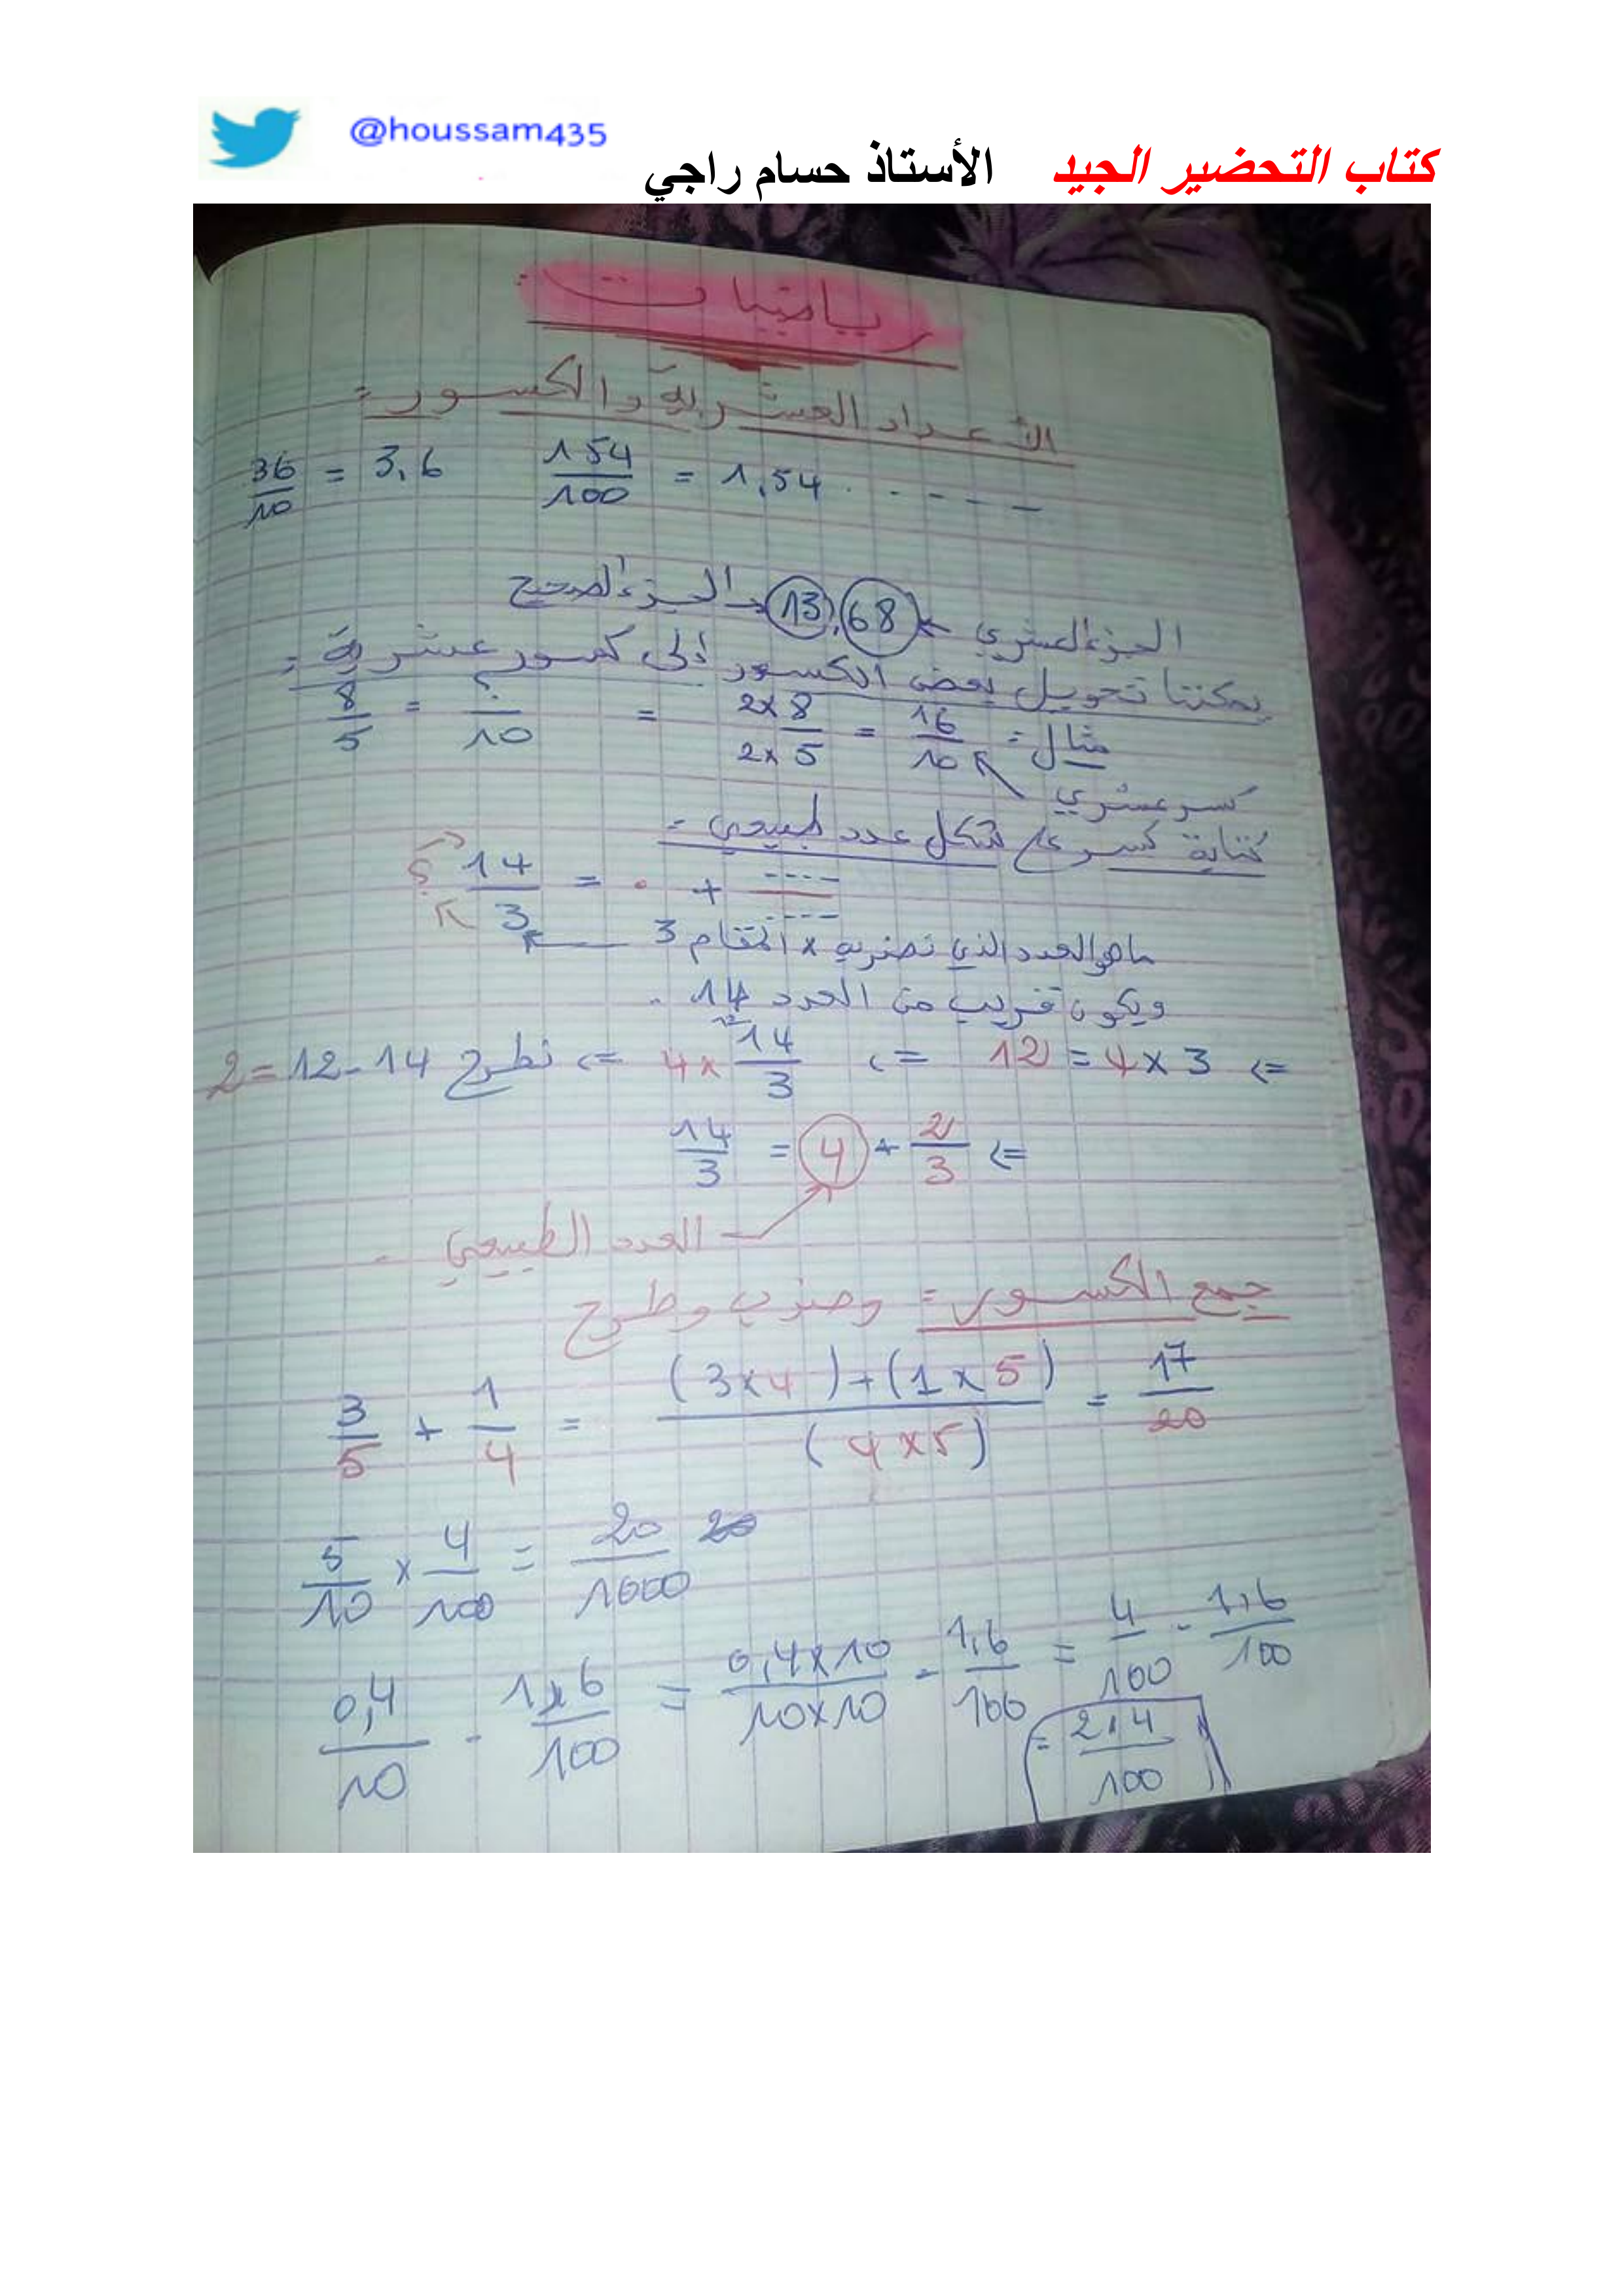 @houssam435
كتاب التحضير الجيد الأستاذ حسام راجي
رياضيات
الأعداد العشرية والكسور =
36/10 = 3,6 154/100 = 1,54 . . - - - -
الجزء العشري ← 13,68 → الجزء الصحيح
يمكننا تحويل بعض الكسور إلى كسور عشرية =
مثال = 8/5 = ?/10 = 2x8/2x5 = 16/10
كسر عشري
كتابة كسر على شكل عدد طبيعي =
؟ 14/3 = . + ----/----
ماهو العدد الذي نضربه x المقام 3
ويكون قريب من العدد 14 .
=> 3 x 4 = 12 => 4x 14/3 => نطرح 14 - 12 = 2
=> 14/3 = 4 + 2/3
العدد الطبيعي
جمع الكسور = وضرب وطرح
3/5 + 1/4 = (3x4)+(1x5)/(4x5) = 17/20
5/10 x 4/100 = 20/1000
0,4/10 - 1,6/100 = 0,4x10/10x10 - 1,6/100 = 4/100 - 1,6/100
= 2,4/100